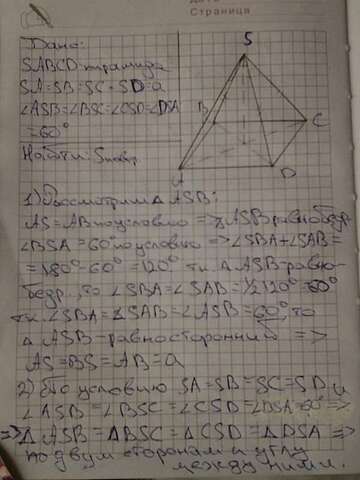 Страница
Дано:
SABCD-пирамида
SA=SB=SC=SD=a
∠ASB=∠BSC=∠CSD=∠DSA
=60°
Найти: Sповр
S
B
C
A
D
1) Рассмотрим △ ASB:
AS=AB по условию => △ASB равнобедр.
∠BSA=60° по условию => ∠SBA+∠SAB=
=180°-60°=120° т.к. △ ASB-равно-
бедр., то ∠SBA=∠SAB=1/2 120°=60°
т.к. ∠SBA=∠SAB=∠ASB=60°, то
△ ASB-равносторонний =>
AS=BS=AB=a
2) По условию SA=SB=SC=SD и
∠ASB=∠BSC=∠CSD=∠DSA=60° =>
=> △ ASB=△BSC=△CSD=△DSA =>
по двум сторонам и углу
между ними.